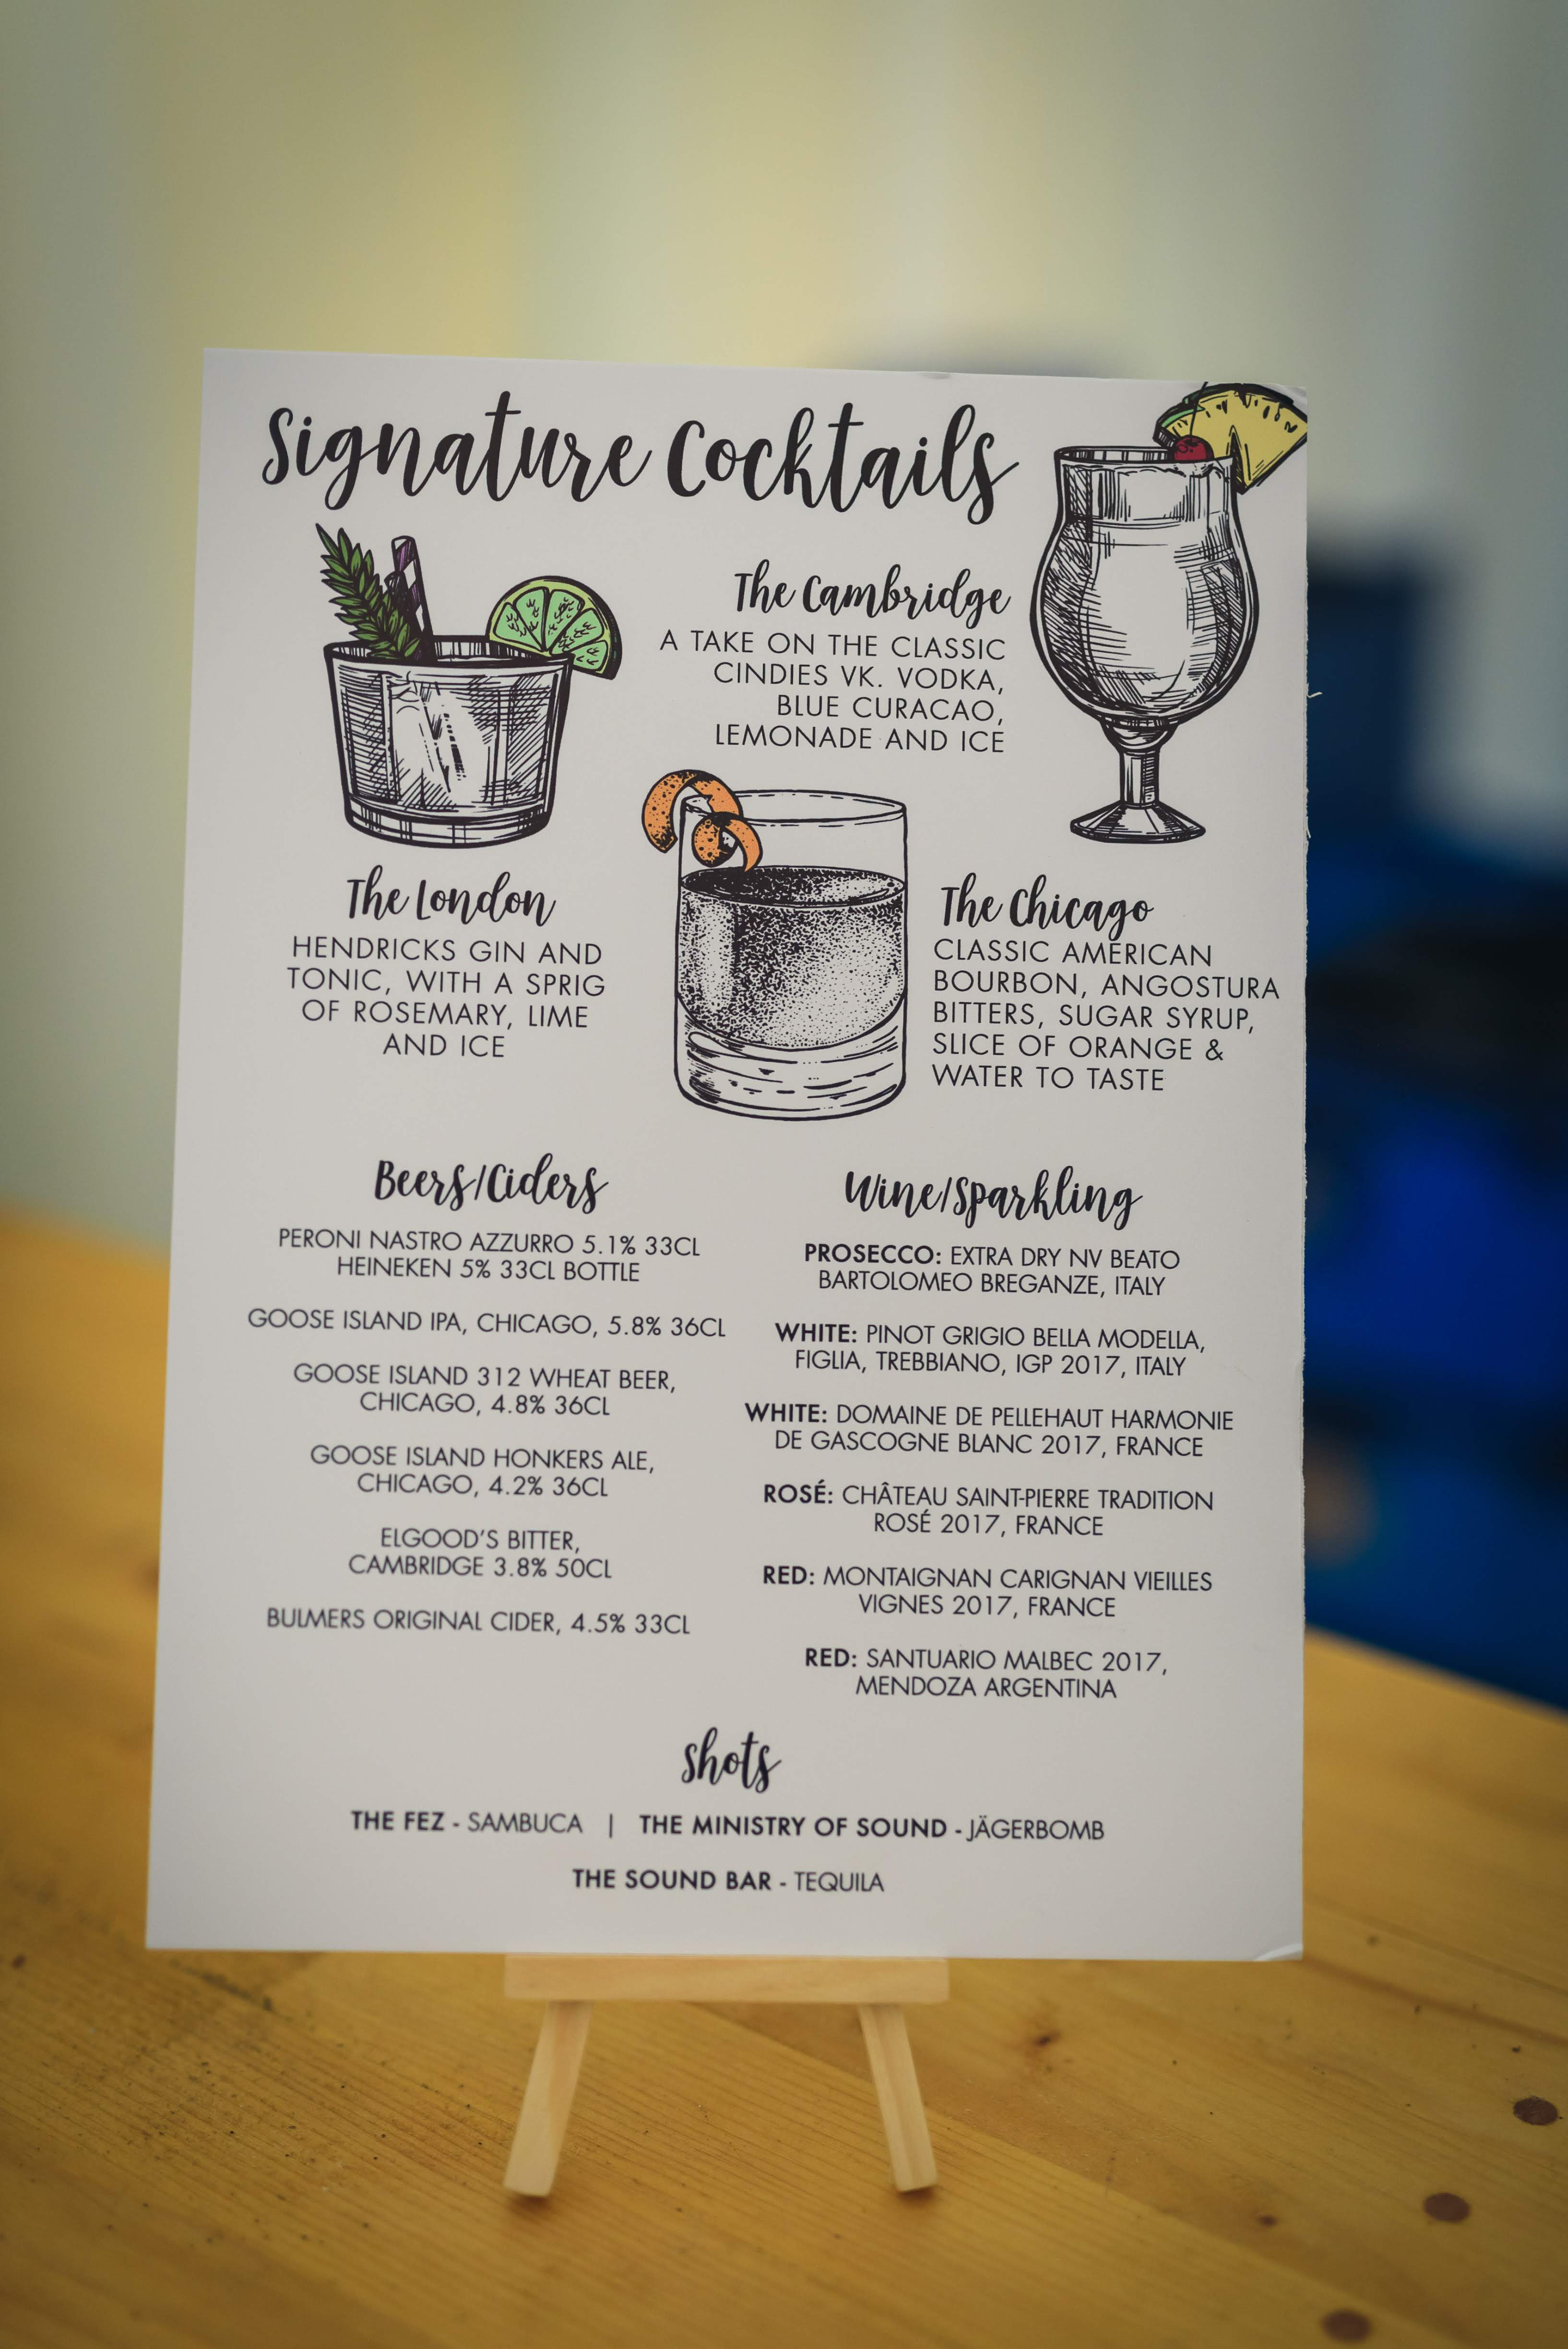 Signature Cocktails
The Cambridge
A TAKE ON THE CLASSIC
CINDIES VK. VODKA,
BLUE CURACAO,
LEMONADE AND ICE
The London
HENDRICKS GIN AND
TONIC, WITH A SPRIG
OF ROSEMARY, LIME
AND ICE
The Chicago
CLASSIC AMERICAN
BOURBON, ANGOSTURA
BITTERS, SUGAR SYRUP,
SLICE OF ORANGE &
WATER TO TASTE
Beers/Ciders
PERONI NASTRO AZZURRO 5.1% 33CL
HEINEKEN 5% 33CL BOTTLE
GOOSE ISLAND IPA, CHICAGO, 5.8% 36CL
GOOSE ISLAND 312 WHEAT BEER,
CHICAGO, 4.8% 36CL
GOOSE ISLAND HONKERS ALE,
CHICAGO, 4.2% 36CL
ELGOOD'S BITTER,
CAMBRIDGE 3.8% 50CL
BULMERS ORIGINAL CIDER, 4.5% 33CL
Wine/Sparkling
PROSECCO: EXTRA DRY NV BEATO
BARTOLOMEO BREGANZE, ITALY
WHITE: PINOT GRIGIO BELLA MODELLA,
FIGLIA, TREBBIANO, IGP 2017, ITALY
WHITE: DOMAINE DE PELLEHAUT HARMONIE
DE GASCOGNE BLANC 2017, FRANCE
ROSÉ: CHÂTEAU SAINT-PIERRE TRADITION
ROSÉ 2017, FRANCE
RED: MONTAIGNAN CARIGNAN VIEILLES
VIGNES 2017, FRANCE
RED: SANTUARIO MALBEC 2017,
MENDOZA ARGENTINA
Shots
THE FEZ - SAMBUCA | THE MINISTRY OF SOUND - JÄGERBOMB
THE SOUND BAR - TEQUILA